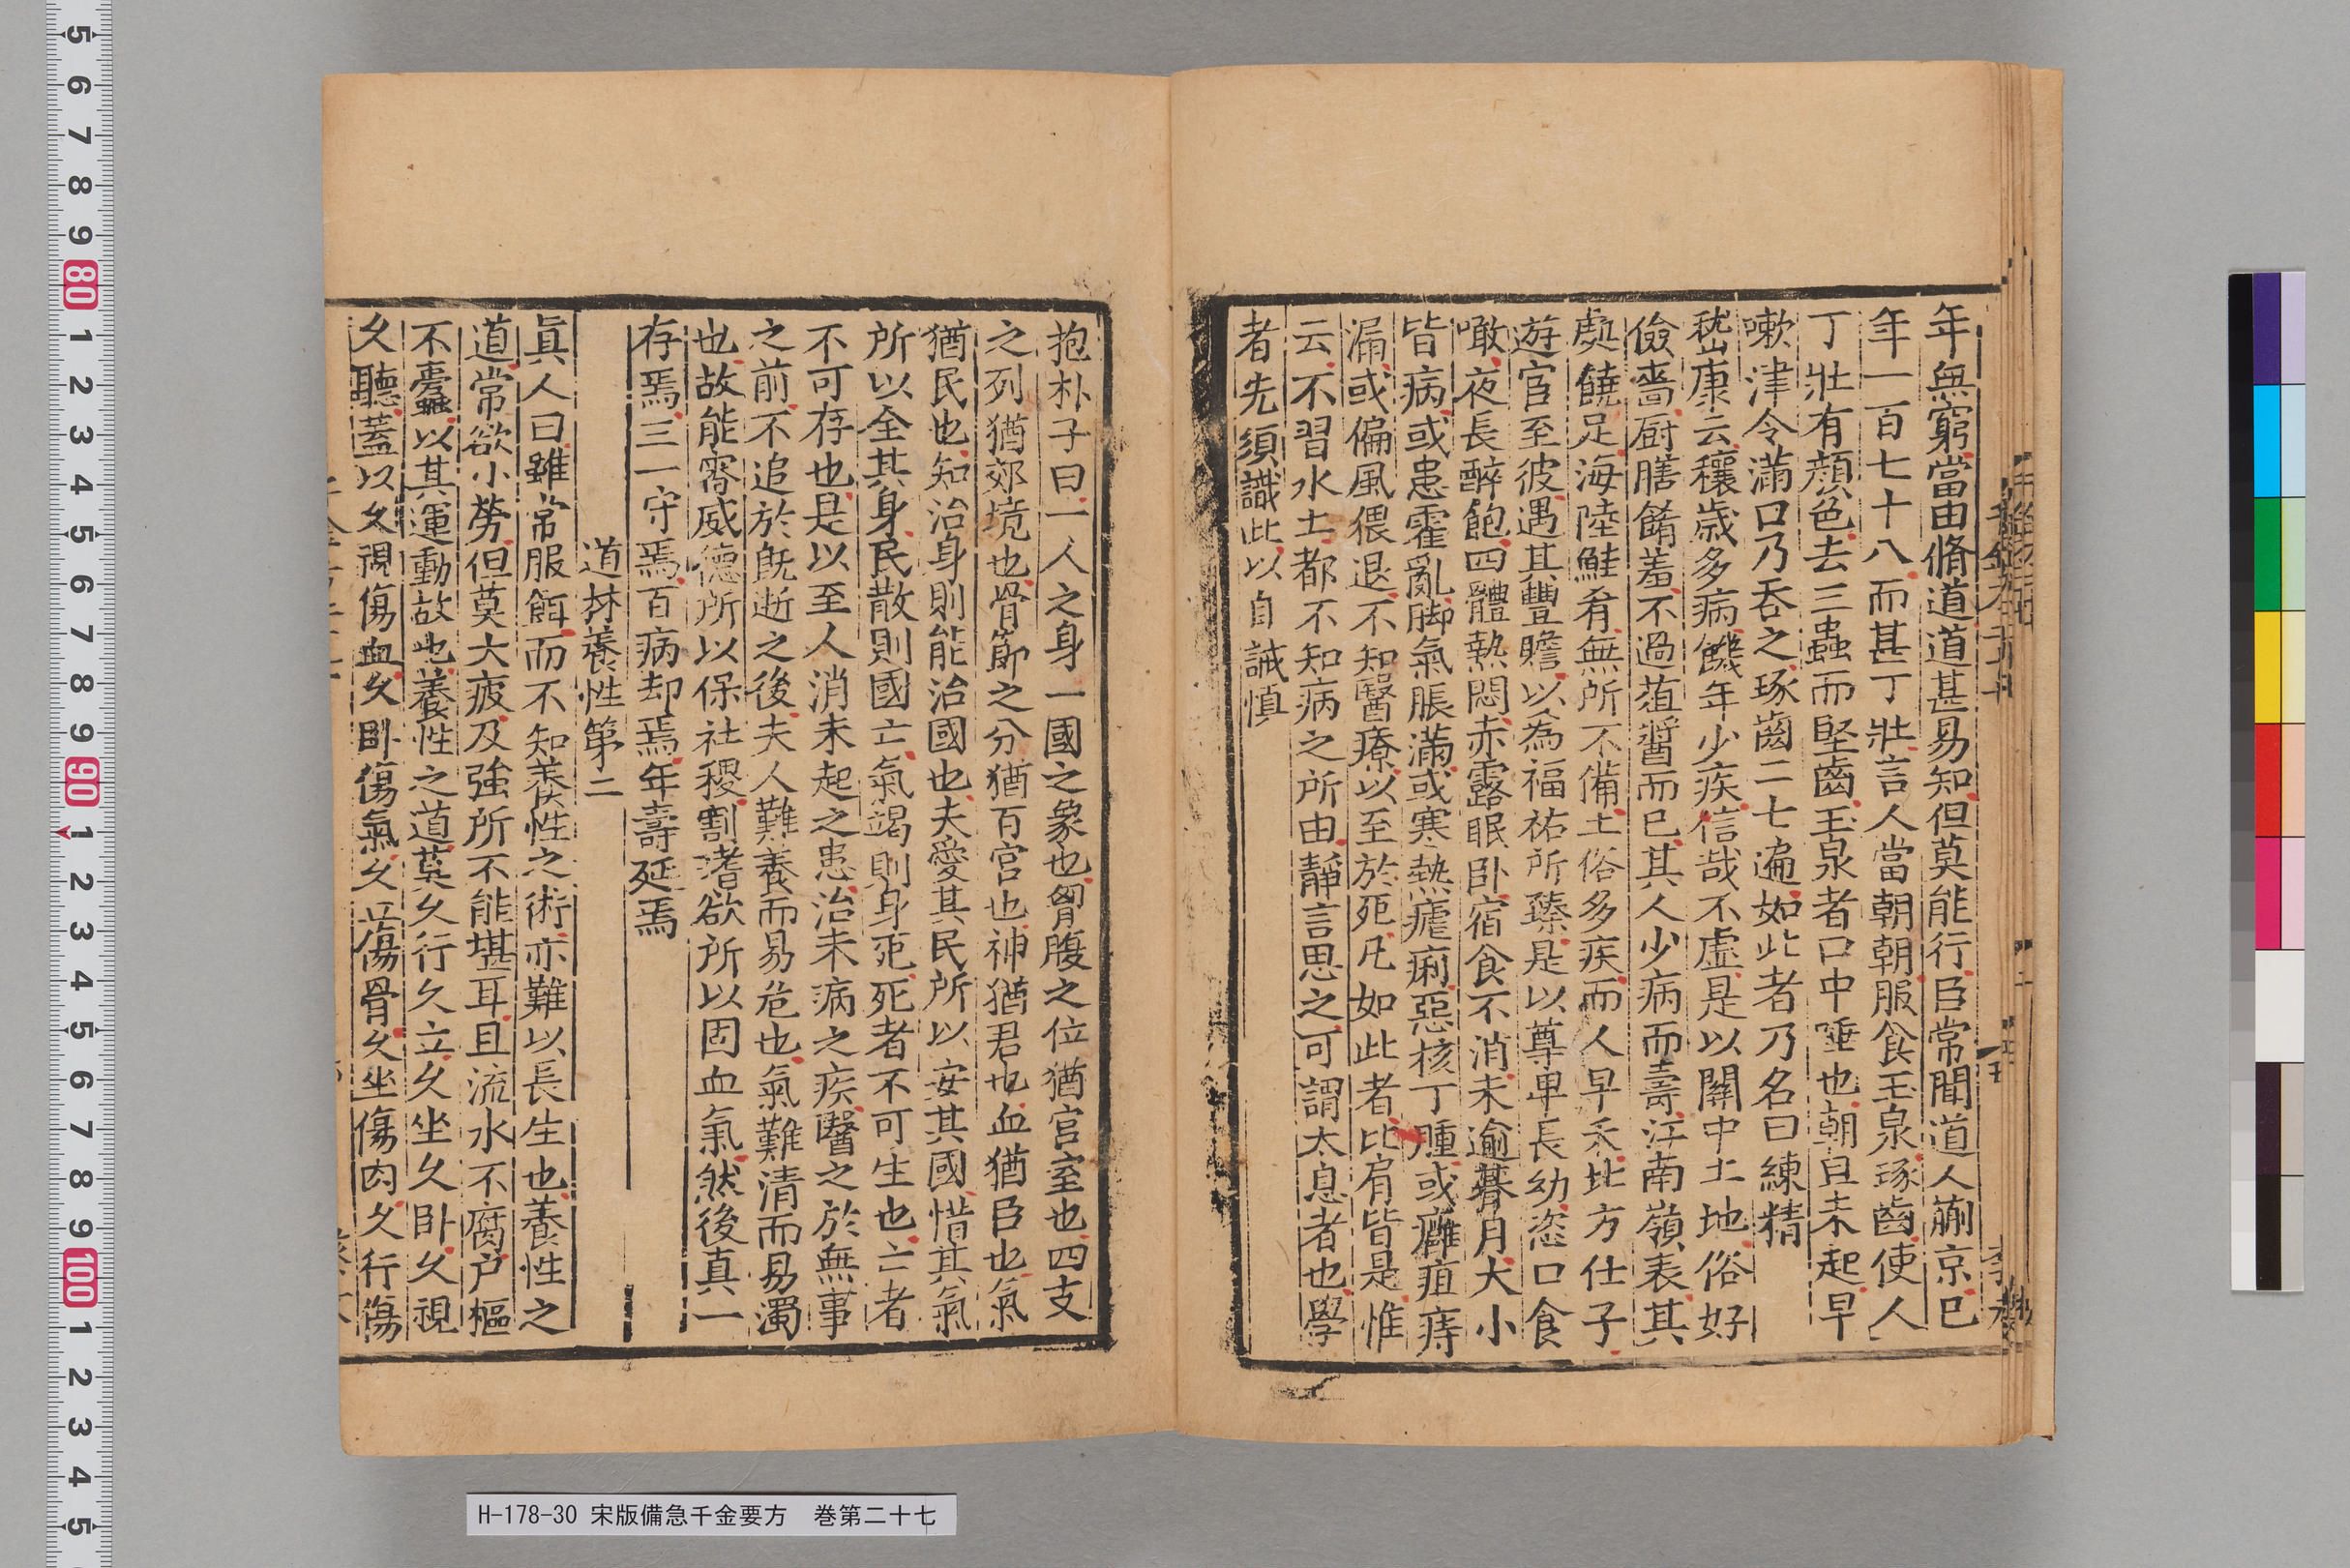 年無窮當由脩道道甚易知但莫能行臣常聞道人蒯京已
年一百七十八而甚丁壯言人當朝朝服食玉泉琢齒使人
丁壯有顔色去三蟲而堅齒玉泉者口中唾也朝旦未起早
嗽津令滿口乃吞之琢齒二七遍如此者乃名曰練精
嵆康云穰歲多病饑年少疾信哉不虛是以關中土地俗好
儉嗇厨膳餚羞不過葅醬而已其人少病而壽江南嶺表其
處饒足海陸鮭肴無所不備土俗多疾而人早夭北方仕子
遊宦至彼遇其豐贍以為福祐所臻是以尊卑長幼恣口食
噉夜長醉飽四體熱悶赤露眠卧宿食不消未逾朞月大小
皆病或患霍亂脚氣脹滿或寒熱瘧痢惡核丁腫或癰疽痔
漏或偏風猥退不知醫療以至於死凡如此者比肩皆是惟
云不習水土都不知病之所由靜言思之可謂太息者也學
者先須識此以自誡慎
抱朴子曰一人之身一國之象也胷腹之位猶宫室也四支
之列猶郊境也骨節之分猶百官也神猶君也血猶臣也氣
猶民也知治身則能治國也夫愛其民所以安其國惜其氣
所以全其身民散則國亡氣竭則身死死者不可生也亡者
不可存也是以至人消未起之患治未病之疾醫之於無事
之前不追於既逝之後夫人難養而易危也氣難清而易濁
也故能審威德所以保社稷割嗜欲所以固血氣然後真一
存焉三一守焉百病却焉年壽延焉
道林養性第二
真人曰雖常服餌而不知養性之術亦難以長生也養性之
道常欲小勞但莫大疲及強所不能堪耳且流水不腐户樞
不蠹以其運動故也養性之道莫久行久立久坐久卧久視
久聽蓋以久視傷血久卧傷氣久立傷骨久坐傷肉久行傷
H-178-30 宋版備急千金要方 巻第二十七